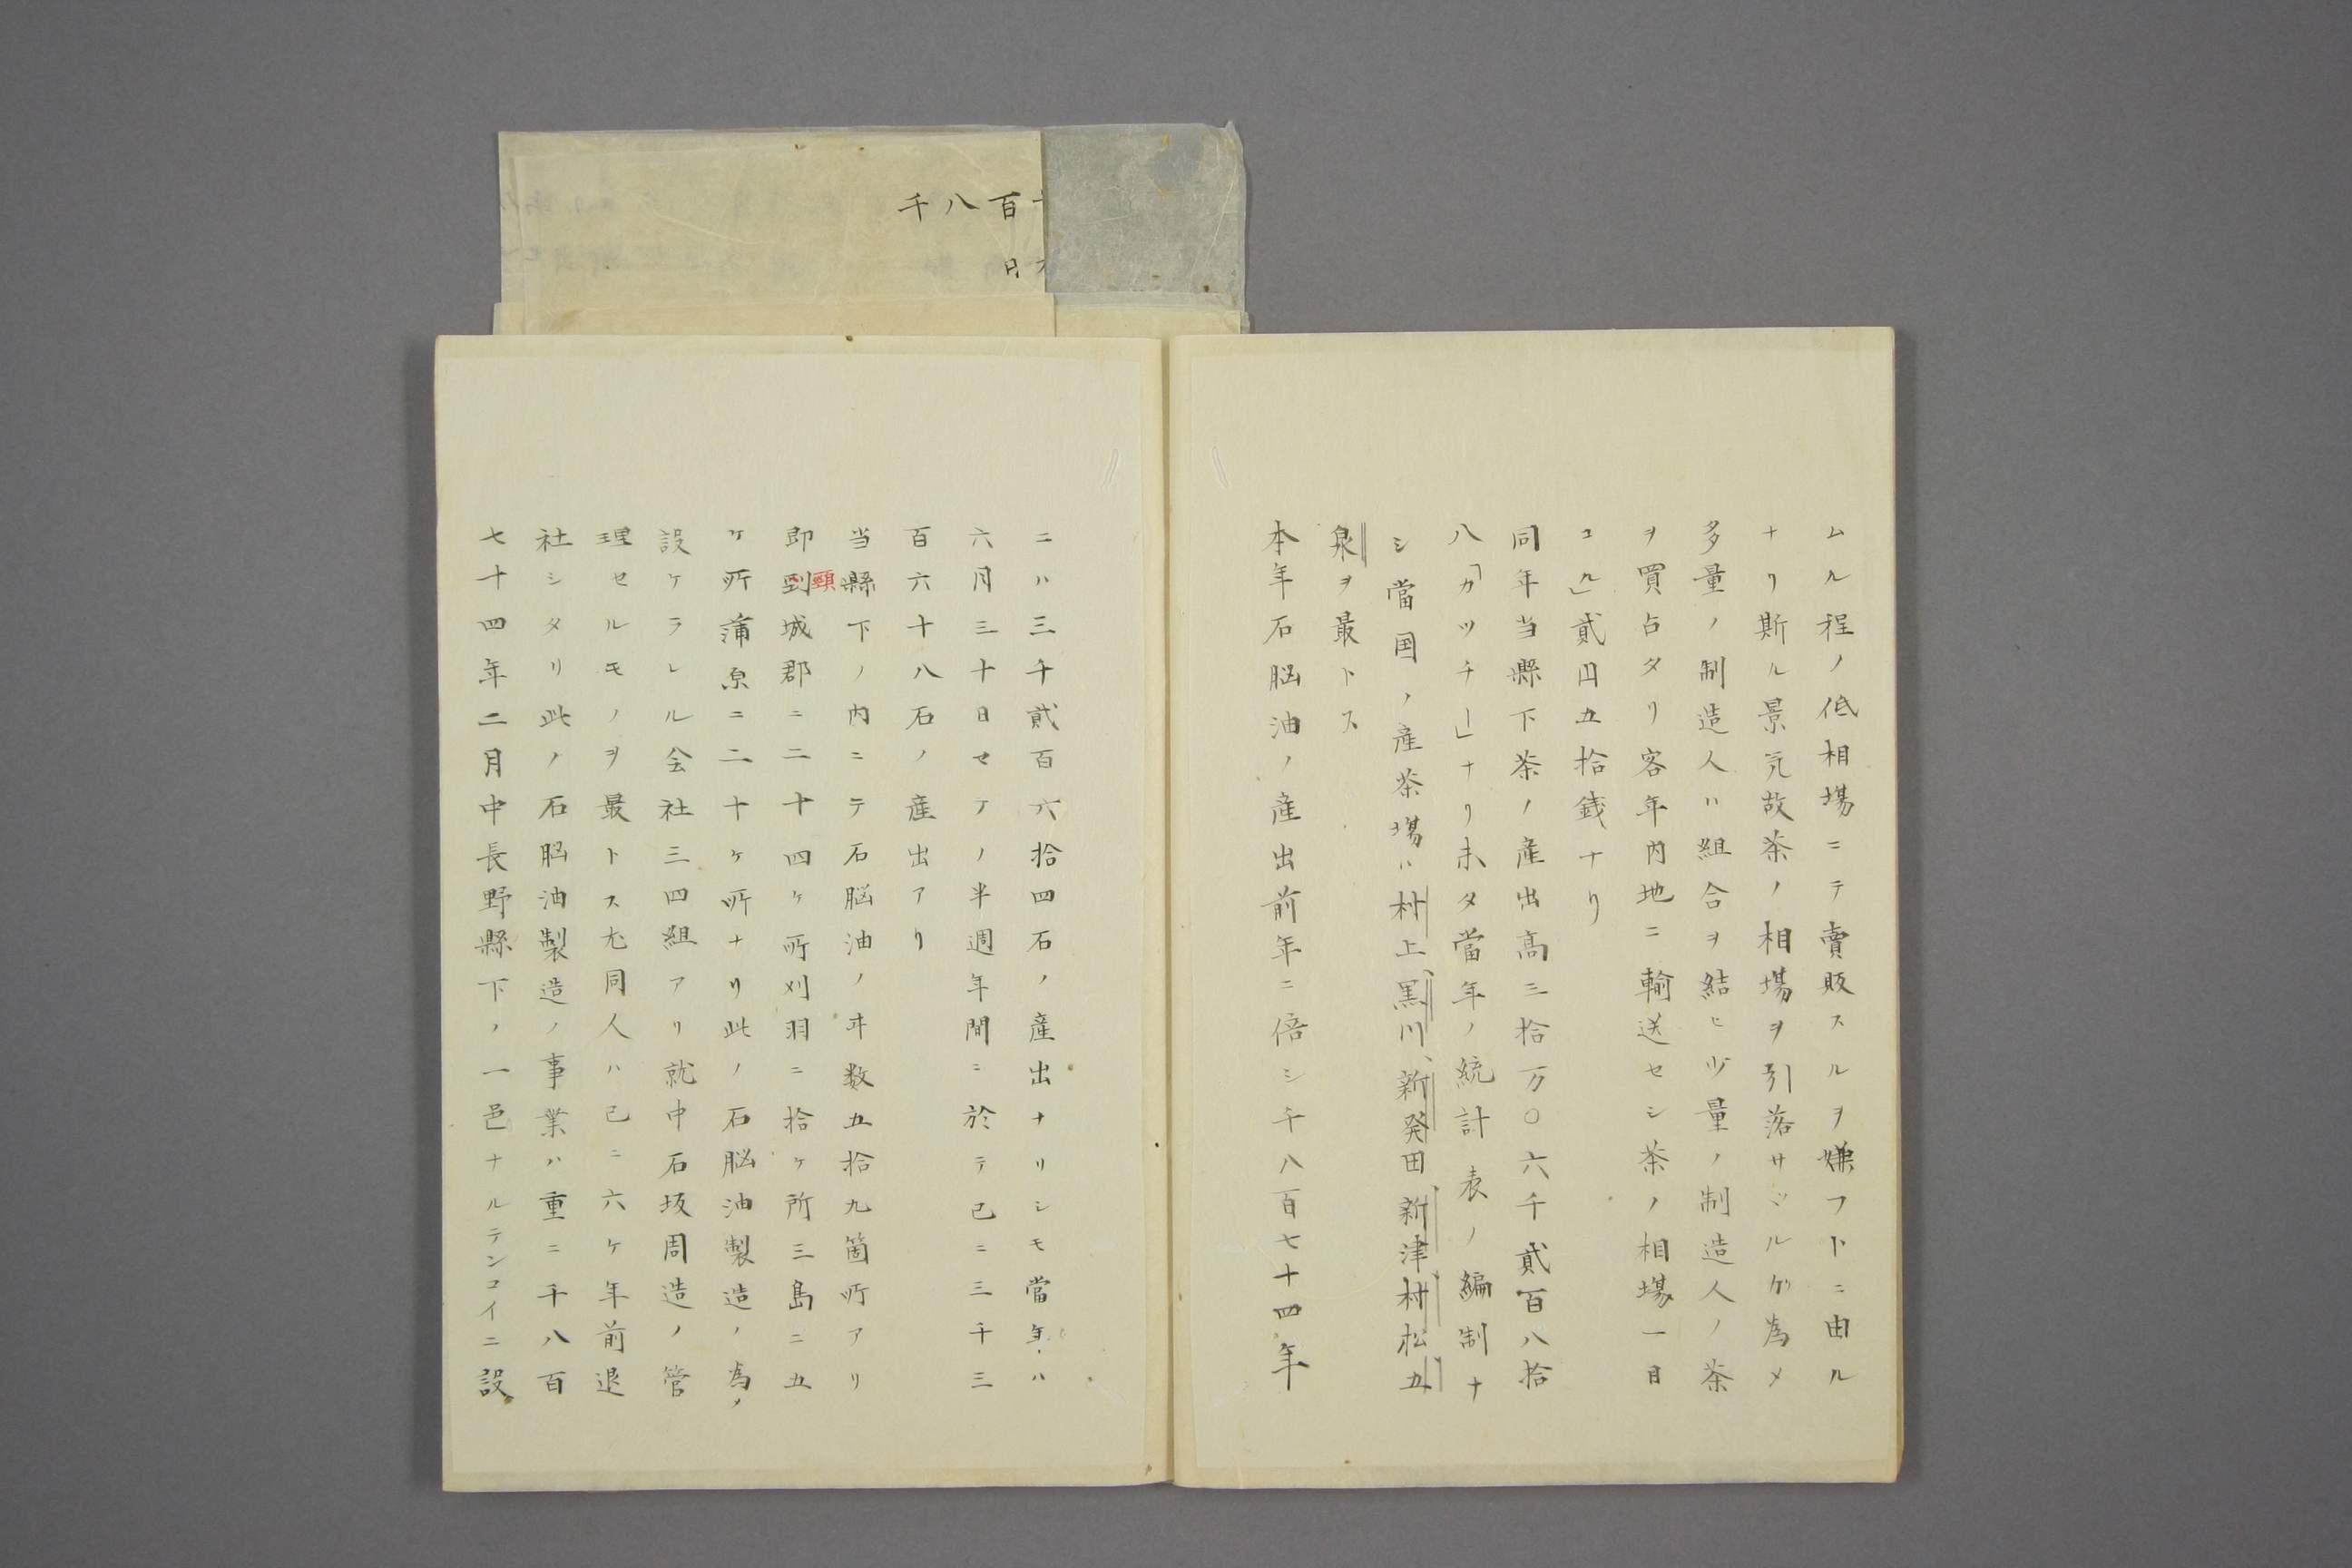 千八百
日
ムル程ノ低相場ニテ賣販スルヲ嫌フトニ由ル
ナリ斯ル景況故茶ノ相場ヲ引落サヾルガ為メ
多量ノ制造人ハ組合ヲ結ヒ少量ノ制造人ノ茶
ヲ買占タリ客年内地ニ輸送セシ茶ノ相場一目
コル」貳円五拾銭ナリ
同年当縣下茶ノ産出高三拾万〇六千貳百八拾
八「カツチー」ナリ未タ當年ノ統計表ノ編制ナ
シ當国ノ産茶場ハ村上、黒川、新発田、新津、村松、五
泉ヲ最トス
本年石脳油ノ産出前年ニ倍シ千八百七十四年
ニハ三千貳百六拾四石ノ産出ナリシモ當年ハ
六月三十日セアノ半週年間ニ於テ已ニ三千三
百六十八石ノ産出アリ
当縣下ノ内ニテ石脳油ノ井数五拾九箇所アリ
即到頸城郡ニ二十四ヶ所刈羽ニ拾ヶ所三島ニ五
ヶ所蒲原ニ二十ヶ所ナリ此ノ石脳油製造ノ為メ
設ケラレル会社三四組アリ就中石坂周造ノ管
理セルモノヲ最トス尤同人ハ已ニ六ヶ年前退
社シタリ此ノ石脳油製造ノ事業ハ重ニ千八百
七十四年二月中長野縣下ノ一邑ナルテンコイニ設